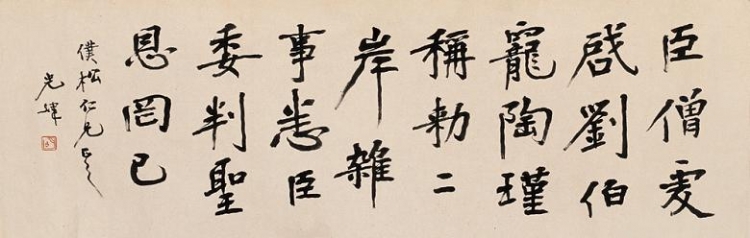 臣僧虔
啓劉伯
寵陶瑾
稱勅二
岸雜
事悉臣
委判聖
恩罔已
僕松仁兄正之
光煒